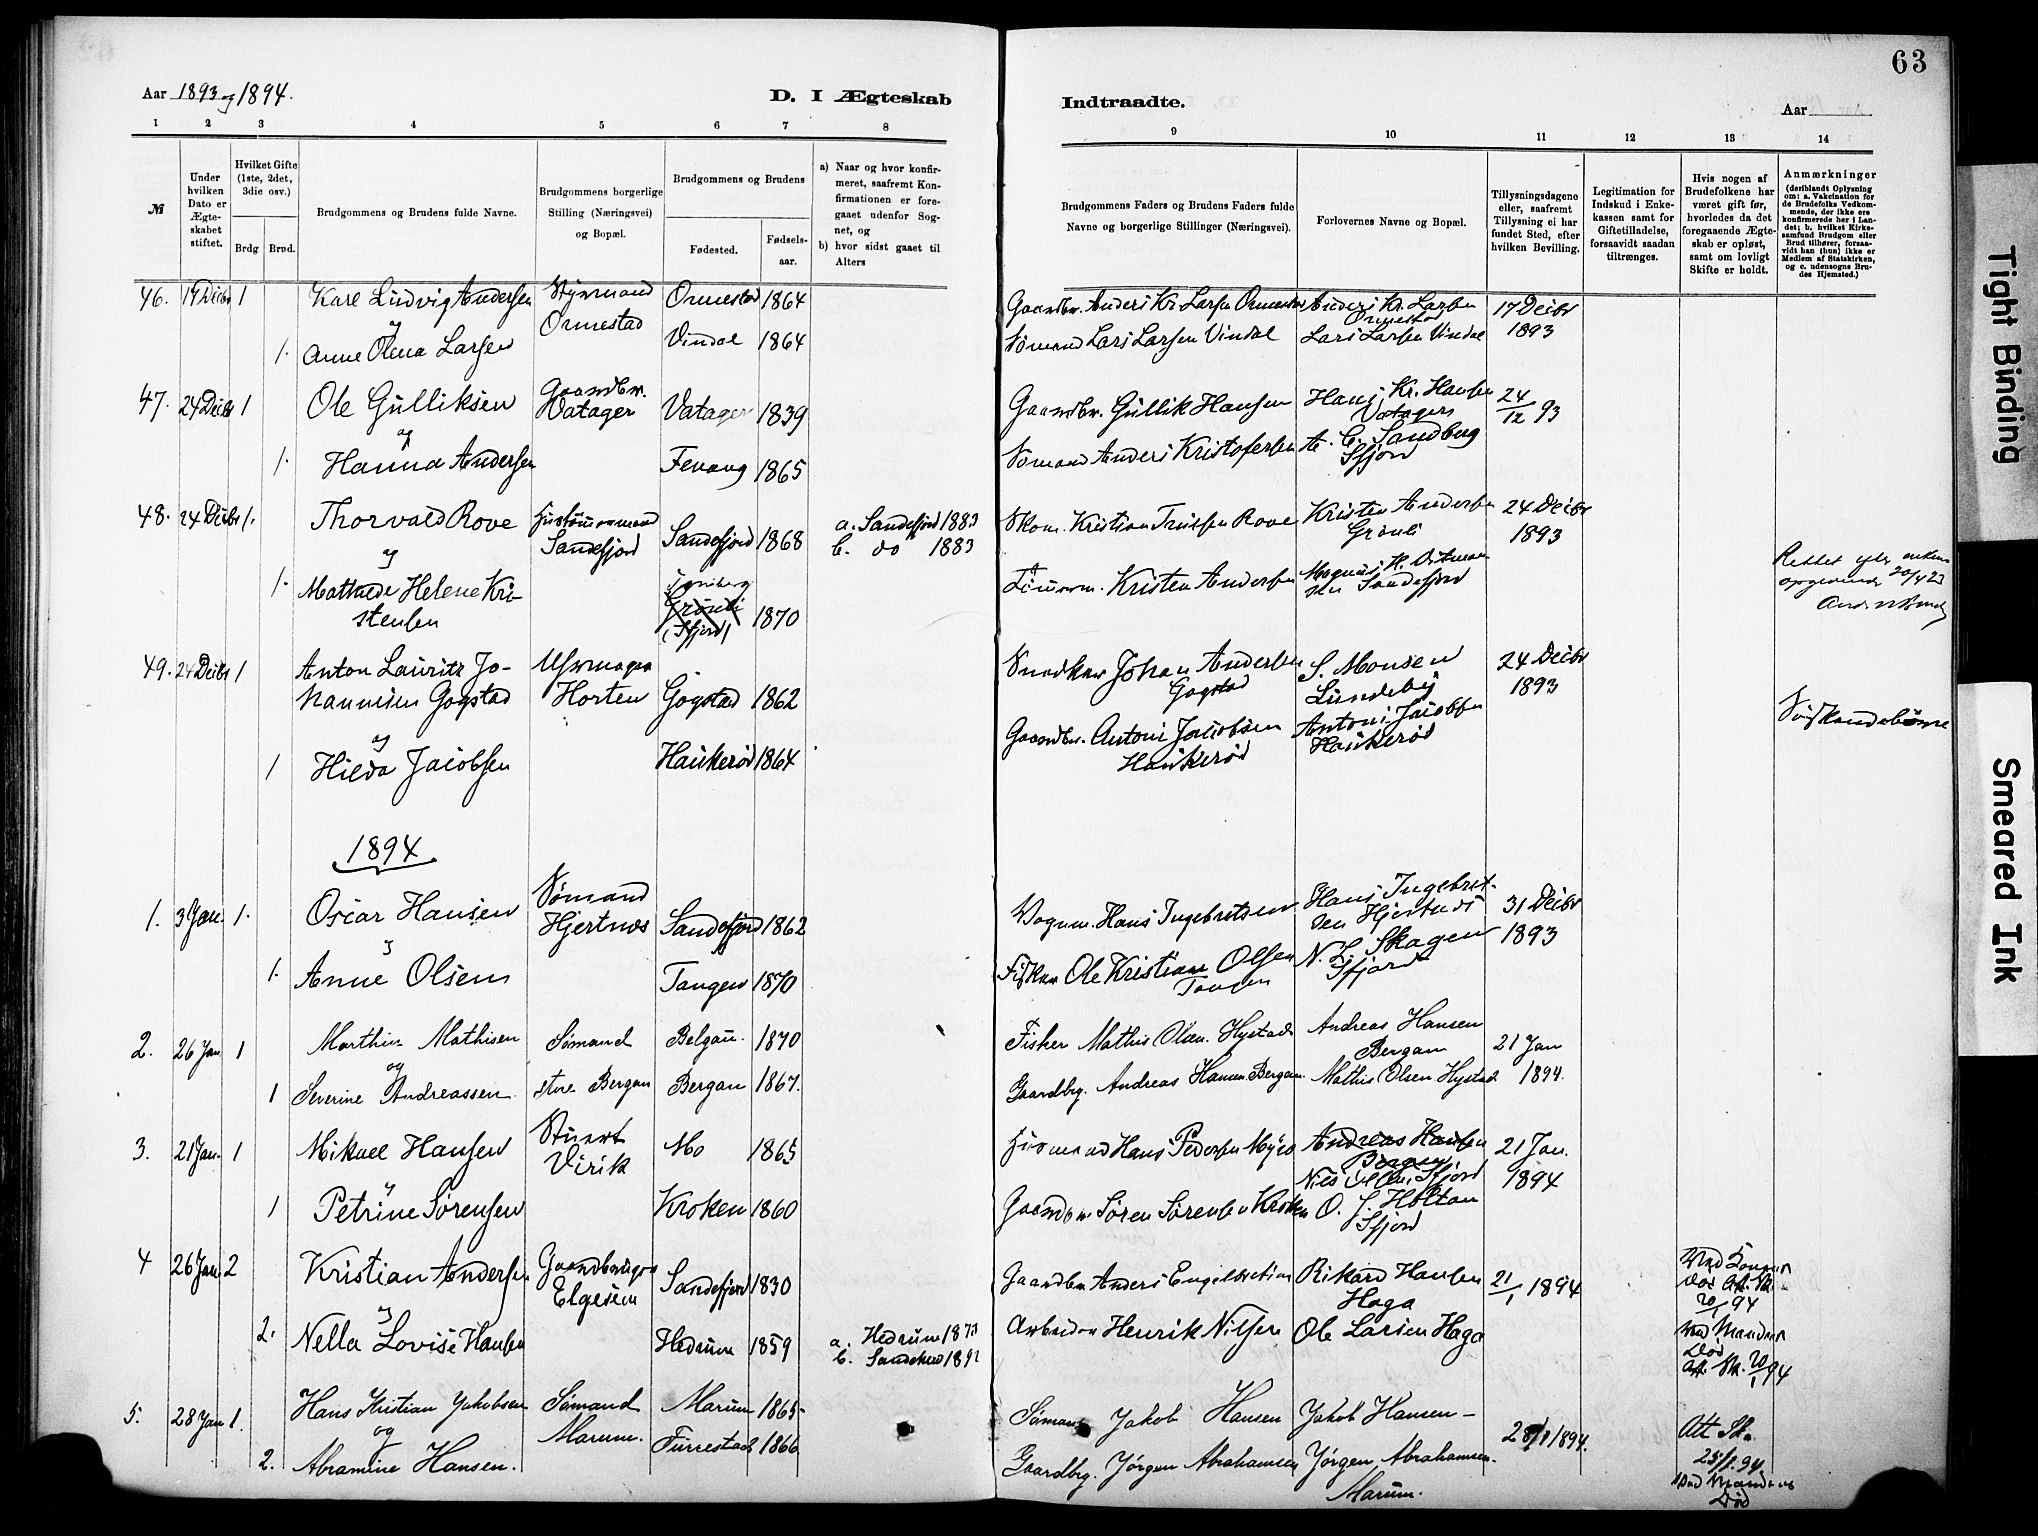 63
Aar 1893 og 1894.
D. I Ægteskab
Indtraadte.
Aar
1 2 3 4 5 6 7 8
9 10 11 12 13 14
№
Under hvilken Dato er Ægteskabet stiftet.
Hvilket Gifte (1ste, 2det, 3die osv.)
Brdg Brud.
Brudgommens og Brudens fulde Navne.
Brudgommens borgerlige Stilling (Næringsvei) og Bopæl.
Brudgommens og Brudens
Fødested.
Fødsels-aar.
a) Naar og hvor konfirmeret, saafremt Konfirmationen er foregaaet udenfor Sognet, og
b) hvor sidst gaaet til Alters
Brudgommens Faders og Brudens Faders fulde Navne og borgerlige Stillinger (Næringsvei).
Forlovernes Navne og Bopæl.
Tillysningsdagene eller, saafremt Tillysning ei har fundet Sted, efter hvilken Bevilling.
Legitimation for Indskud i Enkekassen samt for Giftetilladelse, forsaavidt saadan tiltrænges.
Hvis nogen af Brudefolkene har været gift før, hvorledes da det foregaaende Ægteskab er opløst, samt om lovligt Skifte er holdt.
Anmærkninger
(deriblandt Oplysning om: a. Vakcination for de Brudefolks Vedkommende, der ikke ere konfirmerede her i Landet; b. hvilket Kirkesamfund Brudgom eller Brud tilhører, forsaavidt han (hun) ikke er Medlem af Statskirken, og c. udensogns Brudes Hjemsted.)
46. 17 Decbr 1 Karl Ludvig Andersen Styrmand Ormestad Ormestad 1864 Gaardbr. Anders Kr. Larsen Ormestad Anders Kr. Larsen Ormestad 17 Decbr 1893
og
1. Anne Olena Larsen Vindal 1864 Sømand Lars Larsen Vindal Lars Larsen Vindal
47. 24 Decbr 1 Ole Gulliksen Gaardbr. Vatager Vatager 1839 Gaardbr. Gullik Hansen Hans Kr. Hansen Vatager 24/12 93
og
1. Hanna Andersen Fevang 1865 Sømand Anders Kristofersen A. C. Sandberg Sfjord
48. 24 Decbr 1. Thorvald Rove Sandefjord Sandefjord 1868 a. Sandefjord 1883 b. do 1883 Kristian Kristen Andersen Grønli 24 Decbr 1893
og
1. Mathilde Helene Kristensen Grønli (Sfjord) 1870 Kristen Andersen Magnus Sandefjord
Rettet 20/4 23
49. 24 Decbr 1 Anton Lauritz Johannesen Gogstad Horten Gogstad 1862 Snedker Johan Andersen Gogstad S. Monsen Lundeby 24 Decbr 1893
og
1 Hilda Jacobsen Haukerød 1864 Gaardbr. Antoni Jacobsen Haukerød Antoni Jacobsen Haukerød
Søskendebørn
1894
1. 3 Jan. 1. Oscar Hansen Sømand Hjertnes Sandefjord 1862 Vognm. Hans Ingebretsen Hans Ingebretsen Hjertnes 31 Decbr 1893
og
1. Anne Olsen Tangen 1870 Fisker Ole Kristian Olsen Tangen N. L. Skagen Sfjord
2. 26 Jan 1 Marthin Mathisen Sømand store Bergan Belgau. 1870 Fisher Mathis Olsen Hystad Andreas Hansen Bergan 21 Jan 1894.
og
1 Severine Andreassen. Bergan 1867. Gaardbrg. Andreas Hansen Bergan. Mathis Olsen Hystad
3. 21 Jan. 1 Mikael Hansen Stuert Virik Mo 1865 Husmand Hans Pedersen Andreas Hansen Bergan Nils Sfjord 21 Jan. 1894
og
1 Petrine Sørensen Kroken 1860 Gaardbr Søren Sørensen Kroken O. J. Holtan Sfjord
4 26 Jan 2 Kristian Andersen Gaardbruger Elgesem Sandefjord 1830 Gaardbr Anders Engebretsen Rikard Hansen Haga 21/1 1894 Ved Konens Død Att. Sk. 20/1 94
og
2. Nella Lovise Hansen Hedrum 1859 a. Hedrum 1873 b. Sandeherd Arbeider Henrik Nilsen Ole Larsen Haga Ved Mandens Død Att. Sk. 20/1 94
5. 28 Jan 1. Hans Kristian Jakobsen Sømand Marum. Marum 1865 Sømand Jakob Hansen Jakob Hansen – 28/1 1894.
og
2. Abramine Hansen. Furrestad 1866 Gaardbrg. Jørgen Abrahamsen Jørgen Abrahamsen. Marum. Att Sk. 25/1 94 Ved Mandens Død
Tight Binding
Smeared Ink